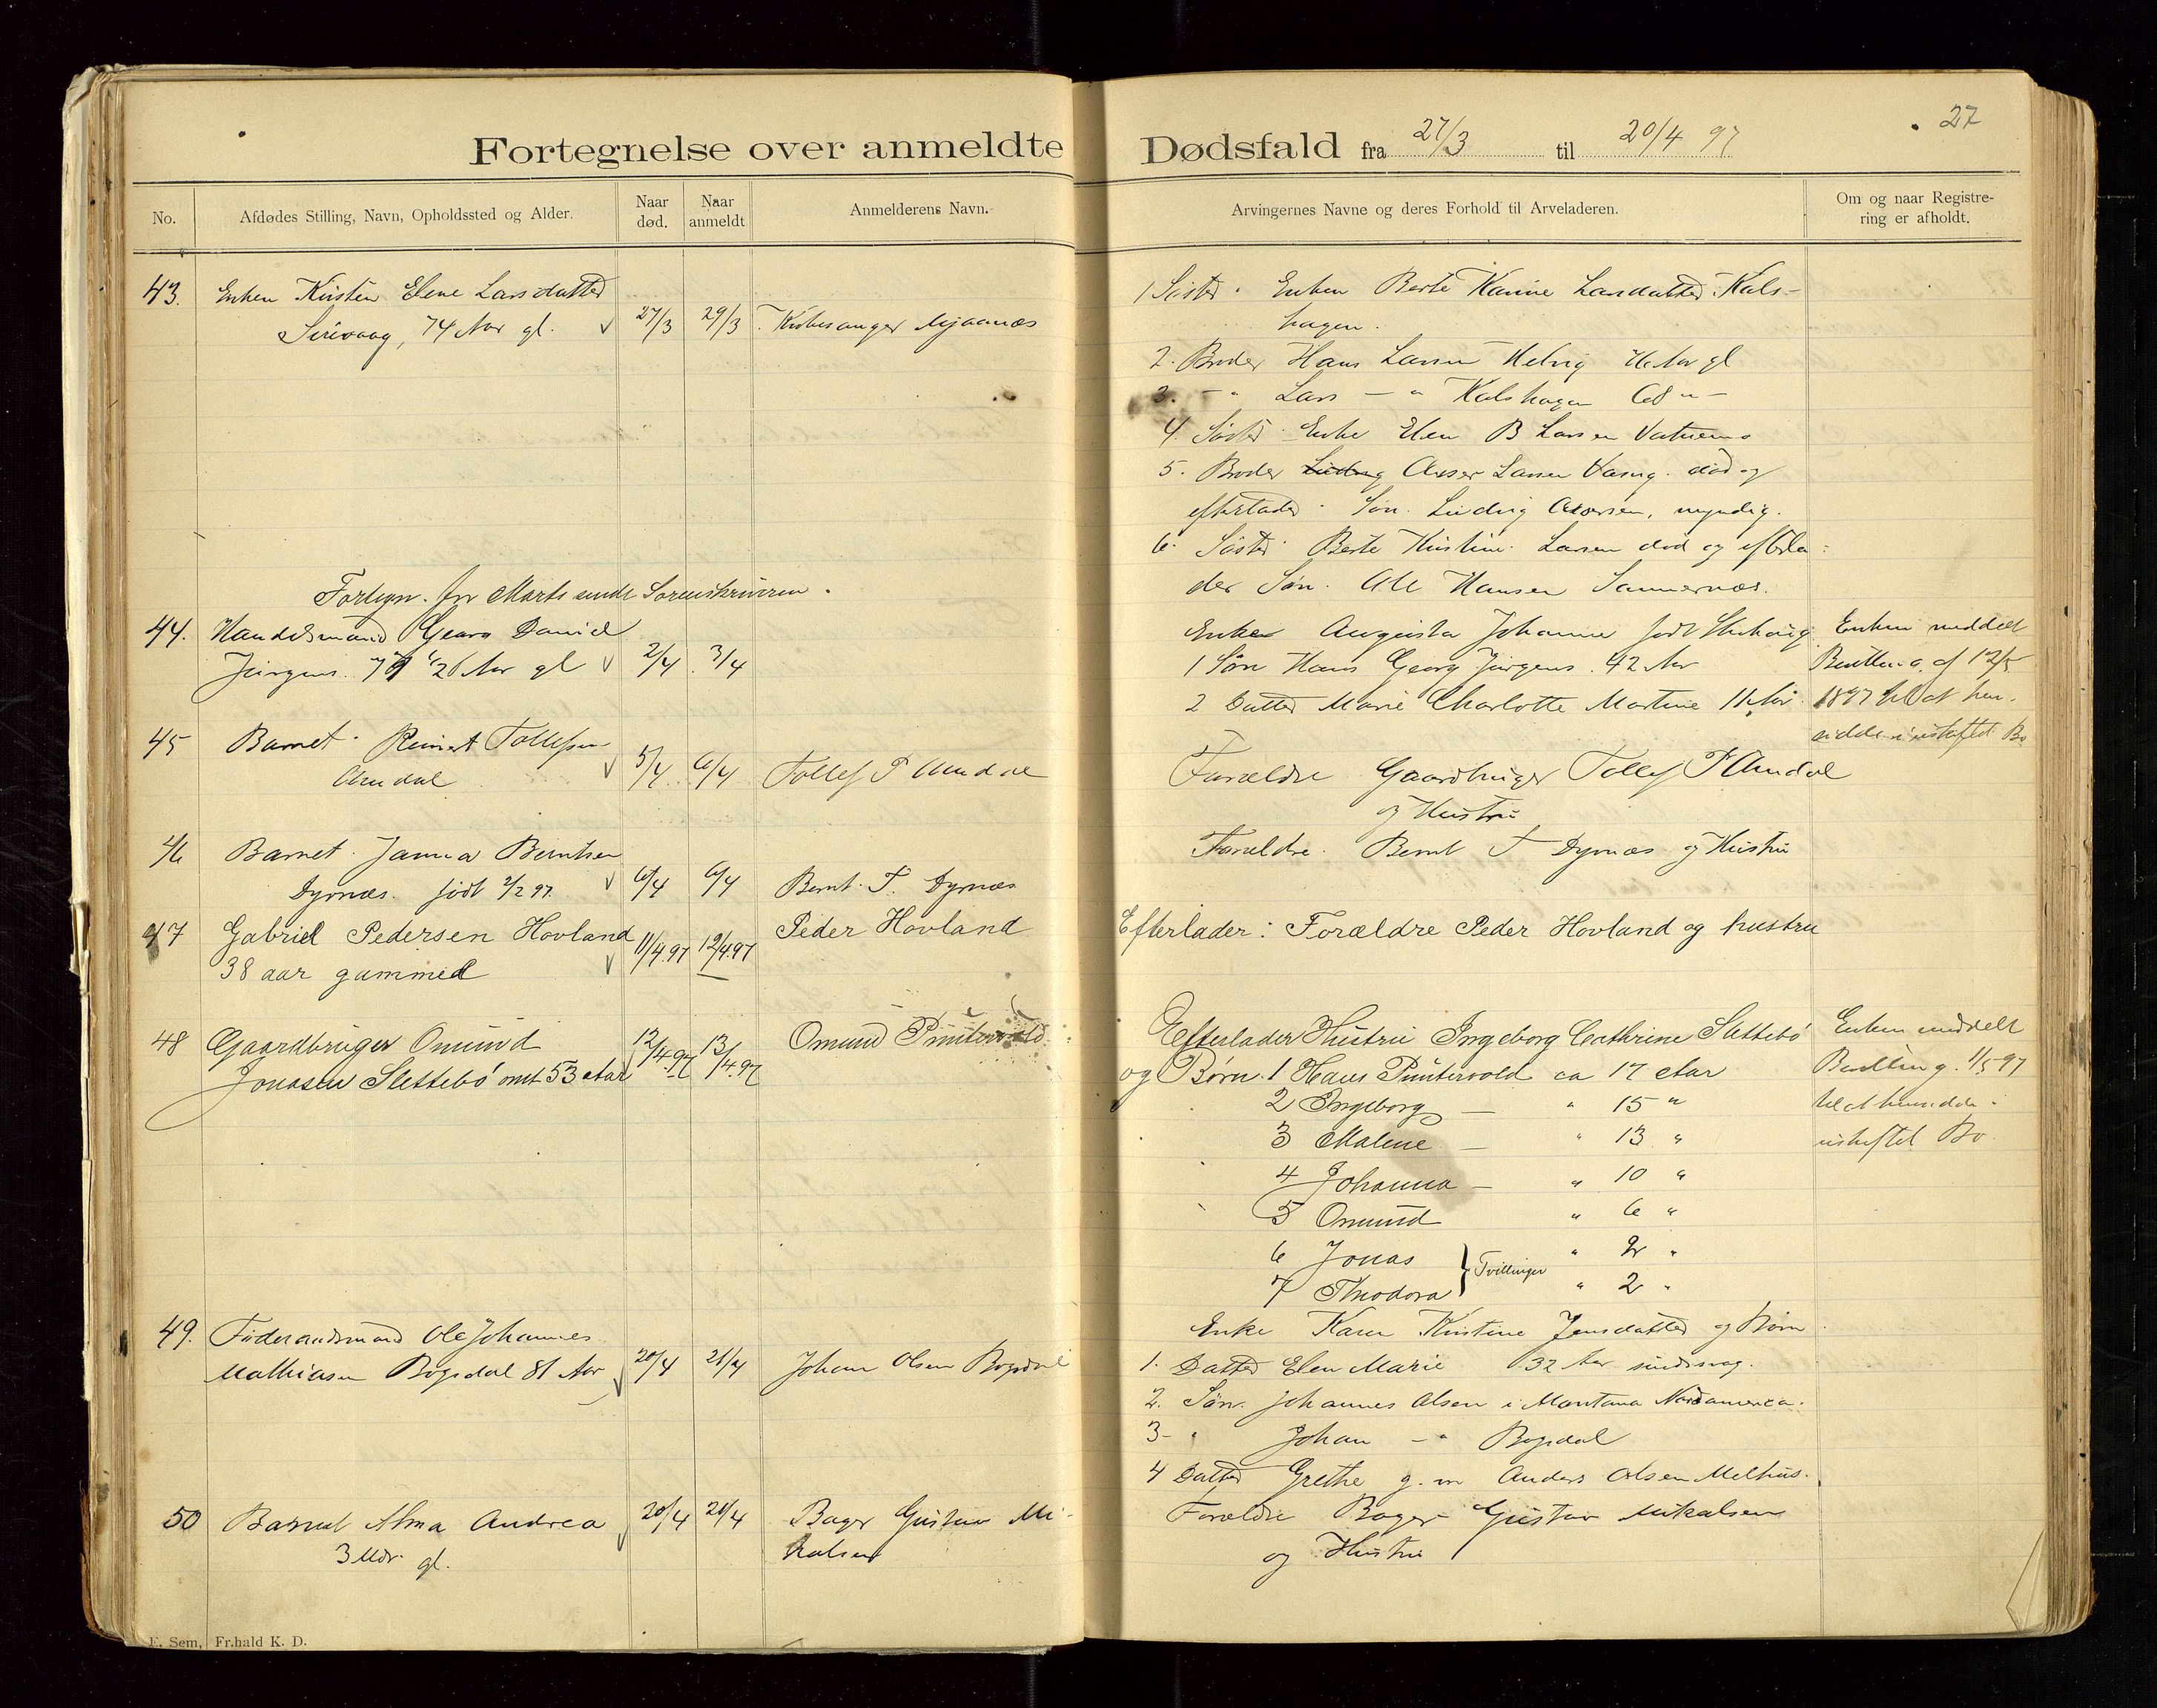 27
Fortegnelse over anmeldte Dødsfald fra 27/3 til 20/4 97
No.
Afdødes Stilling, Navn, Opholdssted og Alder.
Naar død.
Naar anmeldt
Anmelderens Navn.
Arvingernes Navne og deres Forhold til Arveladeren.
Om og naar Registre-
ring er afholdt.
43. Enken Kirsten Elene Larsdatter
Sirevaag, 74 Aar gl. 27/3 29/3 Kirkesanger Mjaanes
1 Søster Enken Berte Karine Larsdatter Kals-
hagen.
2. Broder Hans Larsen Helvig Aar gl
3. - " Lars - " Kalshagen 68 " -
4. Søster Enke Elen B Larsen
5. Broder Asser Larsen død og
efterlader Søn. Ludvig Assersen, myndig.
6. Søster Berte Kristine Larsen død og efterla-
der Søn. Hansen
Fortegn. for Marts sendt Sorenskriveren.
44. Handelsmand Georg Daniel
Jürgens. Aar gl 2/4 3/4
Enke Augusta Johanne født
1 Søn Hans Georg Jürgens. 42 Aar
2 Datter Marie Charlotte Martine Aar
Enken meddelt
Bevilling af 12/5
1897 til at hen-
sidde i uskiftet Bo
45 Barnet Reinert Tollefsen
Årrdal 5/4 6/4 Tollef P
Forældre Gaardbruger Tollef P
og Hustru
46 Barnet Janna Berntsen
Dyrnæs. født 2/2 97. 6/4 6/4 Bernt T. Dyrnæs
Forældre. Bernt T Dyrnæs og Hustru
47 Gabriel Pedersen Hovland
38 aar gammel 11/4.97 12/4.97 Peder Hovland
Efterlader: Forældre Peder Hovland og hustru
48 Gaardbruger Omund
Jonasen Slettebö omt 53 Aar 12/4.97 13/4.97 Omund Puntervold
Efterlader Hustru Ingeborg Cathrine Slettebö
og Børn. 1 Hans Puntervold ca 17 Aar
2 Ingeborg — " 15 "
3 Malene — " 13 "
4 Johanna — " 10 "
5 Omund " 6 "
6 Jonas " 2 "
7 Theodora } Tvillinger " 2 "
Enken meddelt
Bevilling. 1/5 97
til at hensidde i
uskiftet Bo.
49. Føderaadsmand Ole Johannes
Mathiasen Bøgsdal 81 Aar 20/4 21/4 Johan Olsen Bøgsdal
Enke Karen Kristine Jensdatter og Børn
1. Datter Elen Marie 32 Aar sindssvag.
2. Søn. Johannes Olsen i Montana Nordamerica.
3- " Johan - " Bøgsdal
4 Datter Grethe g. m Anders Olsen Melhus.
50 Barnet Alma Andrea
3 Mdr. gl. 20/4 21/4 Bager Gustav Mi-
kalsen
Forældre Bager Gustav Mikalsen
og Hustru
E. Sem, Fr.hald K. D.